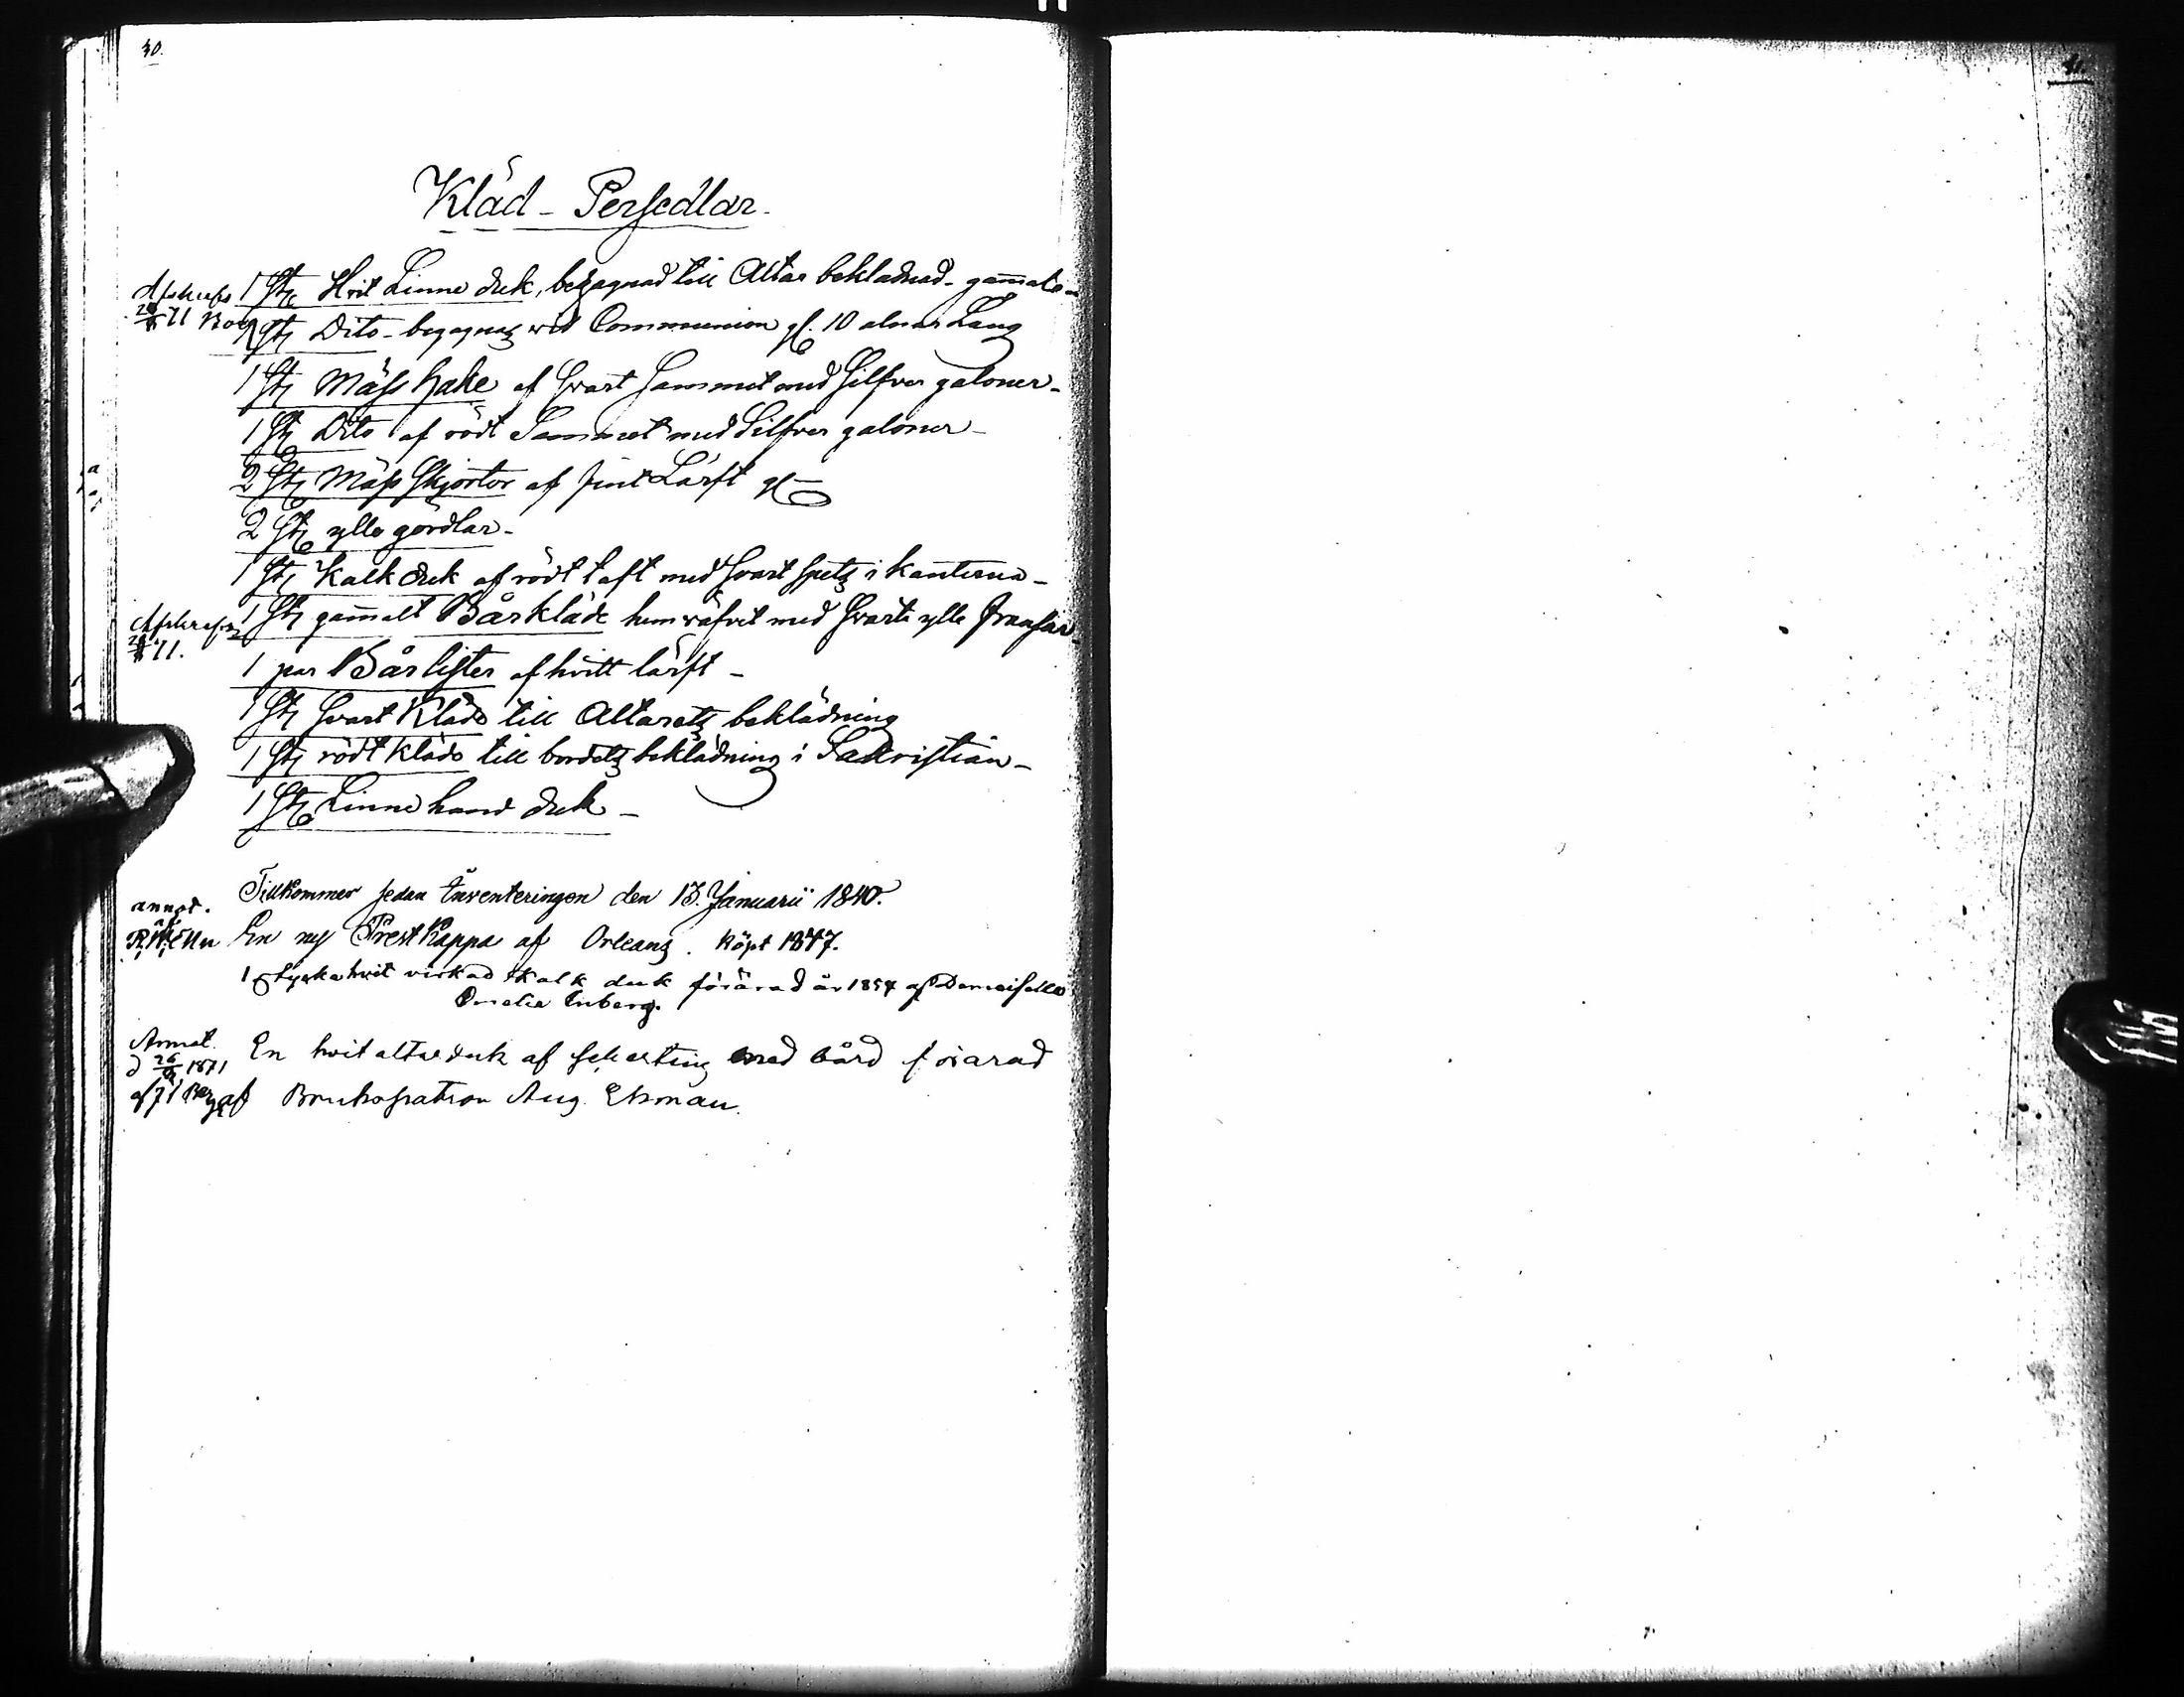 40.
Kläd-Persedlar.
Afskrefs 1 St. Hvit Linne duk, begagnad till Altar beklädnad - gam̄al -
1 St. Dito - begagnas vid Communion gl. 10 alnar Lang
1 St. Mäss hake af svart Sammet med Silfver galoner -
1 St. Dito af rödt Sammet med Silfver galoner -
2 St. Mäss skjortor af fint Lärft
2 St. ylle gördlar -
1 St. Kalk duk af rödt taft med svart spets i kanterna -
Afskrefs 1 St. gam̄alt Bårkläde hemväfvet med svarta ylle fransar
1 par Bårlister af hvitt lärft -
1 St. svart Kläde till Altarets beklädning
1 St. rödt kläde till bordets beklädning i Sakristian -
1 St. Linne hand duk -
Tillkommer sedan Inventeringen den 13. Januarii 1840.
annot. af
En ny Prest Kappa af Orleans. Köpt 1847.
1 stycke hvit virkad kalk duk förärad år 1854 af Demoiselle
Emelia Enberg.
Annot. En hvit altarduk af scherting med bård förärad
d 26 1871
af Brukspatron Aug. Ekman.